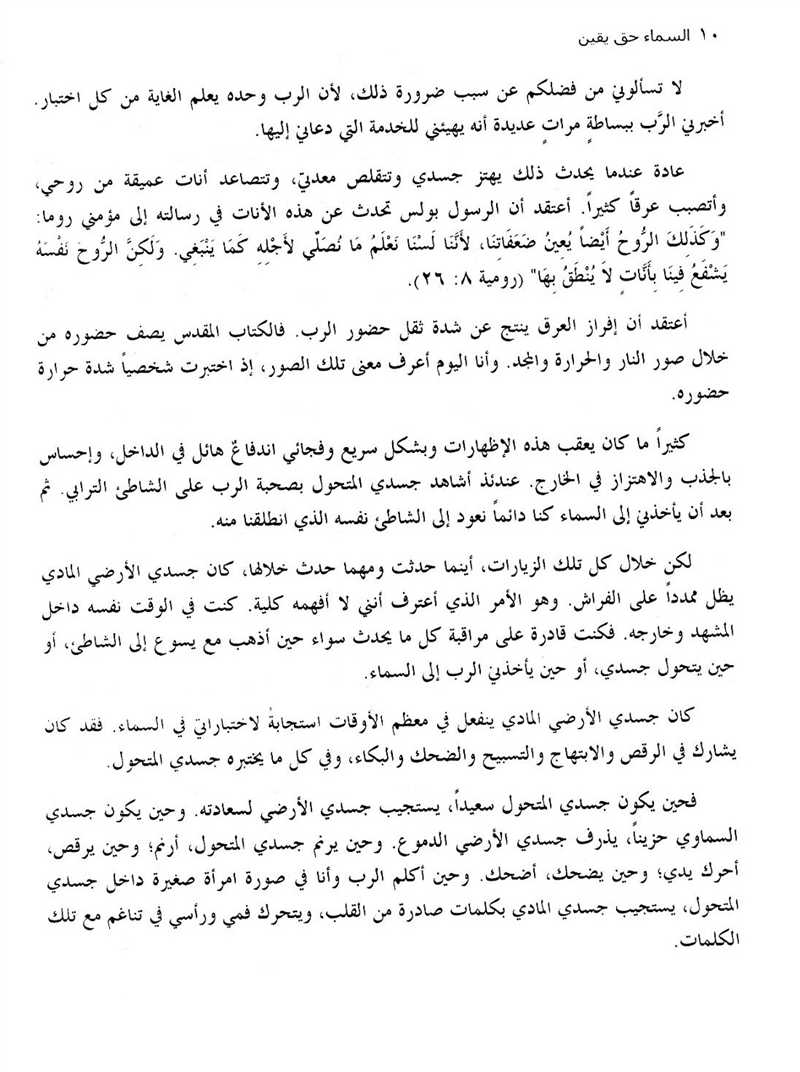 ١٠ السماء حق يقين
لا تسألوني من فضلكم عن سبب ضرورة ذلك، لأن الرب وحده يعلم الغاية من كل اختبار.
أخبرني الرَّب ببساطةٍ مراتٍ عديدة أنه يهيئني للخدمة التي دعاني إليها.
عادة عندما يحدث ذلك يهتز جسدي وتتقلص معدتي، وتتصاعد أنات عميقة من روحي،
وأتصبب عرقاً كثيراً. أعتقد أن الرسول بولس تحدث عن هذه الأنات في رسالته إلى مؤمني روما:
"وَكَذَلِكَ الرُّوحُ أَيْضاً يُعِينُ ضَعَفَاتِنَا، لأَنَّنَا لَسْنَا نَعْلَمُ مَا نُصَلِّي لأَجْلِهِ كَمَا يَنْبَغِي. وَلَكِنَّ الرُّوحَ نَفْسَهُ
يَشْفَعُ فِينَا بِأَنَّاتٍ لاَ يُنْطَقُ بِهَا" (رومية ٨: ٢٦).
أعتقد أن إفراز العرق ينتج عن شدة ثقل حضور الرب. فالكتاب المقدس يصف حضوره من
خلال صور النار والحرارة والمجد. وأنا اليوم أعرف معنى تلك الصور، إذ اختبرت شخصياً شدة حرارة
حضوره.
كثيراً ما كان يعقب هذه الإظهارات وبشكل سريع وفجائي اندفاعٌ هائل في الداخل، وإحساس
بالجذب والاهتزاز في الخارج. عندئذ أشاهد جسدي المتحول بصحبة الرب على الشاطئ الترابي. ثم
بعد أن يأخذني إلى السماء كنا دائماً نعود إلى الشاطئ نفسه الذي انطلقنا منه.
لكن خلال كل تلك الزيارات، أينما حدثت ومهما حدث خلالها، كان جسدي الأرضي المادي
يظل ممدداً على الفراش. وهو الأمر الذي أعترف أنني لا أفهمه كلية. كنت في الوقت نفسه داخل
المشهد وخارجه. فكنت قادرة على مراقبة كل ما يحدث سواء حين أذهب مع يسوع إلى الشاطئ، أو
حين يتحول جسدي، أو حين يأخذني الرب إلى السماء.
كان جسدي الأرضي المادي ينفعل في معظم الأوقات استجابةً لاختباراتي في السماء. فقد كان
يشارك في الرقص والابتهاج والتسبيح والضحك والبكاء، وفي كل ما يختبره جسدي المتحول.
فحين يكون جسدي المتحول سعيداً، يستجيب جسدي الأرضي لسعادته. وحين يكون جسدي
السماوي حزيناً، يذرف جسدي الأرضي الدموع. وحين يرنم جسدي المتحول، أرنم؛ وحين يرقص،
أحرك يدي؛ وحين يضحك، أضحك. وحين أكلم الرب وأنا في صورة امرأة صغيرة داخل جسدي
المتحول، يستجيب جسدي المادي بكلمات صادرة من القلب، ويتحرك فمي ورأسي في تناغم مع تلك
الكلمات.